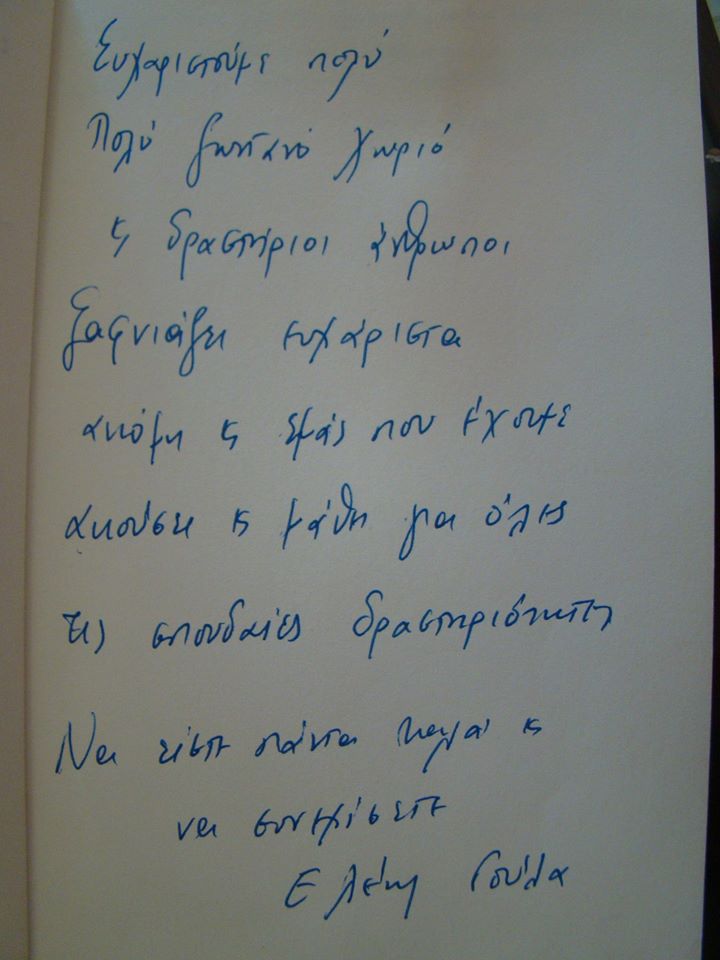 Ευχαριστούμε πολύ
Πολύ ζωντανό χωριό
κ δραστήριοι άνθρωποι
Ξαφνιάζει ευχάριστα
ακόμη κ εμάς που έχουμε
ακούσει κ μάθει για όλες
τις σπουδαίες δραστηριότητες
Να είστε πάντα καλά κ
να συνεχίσετε
Ελένη Γούλα